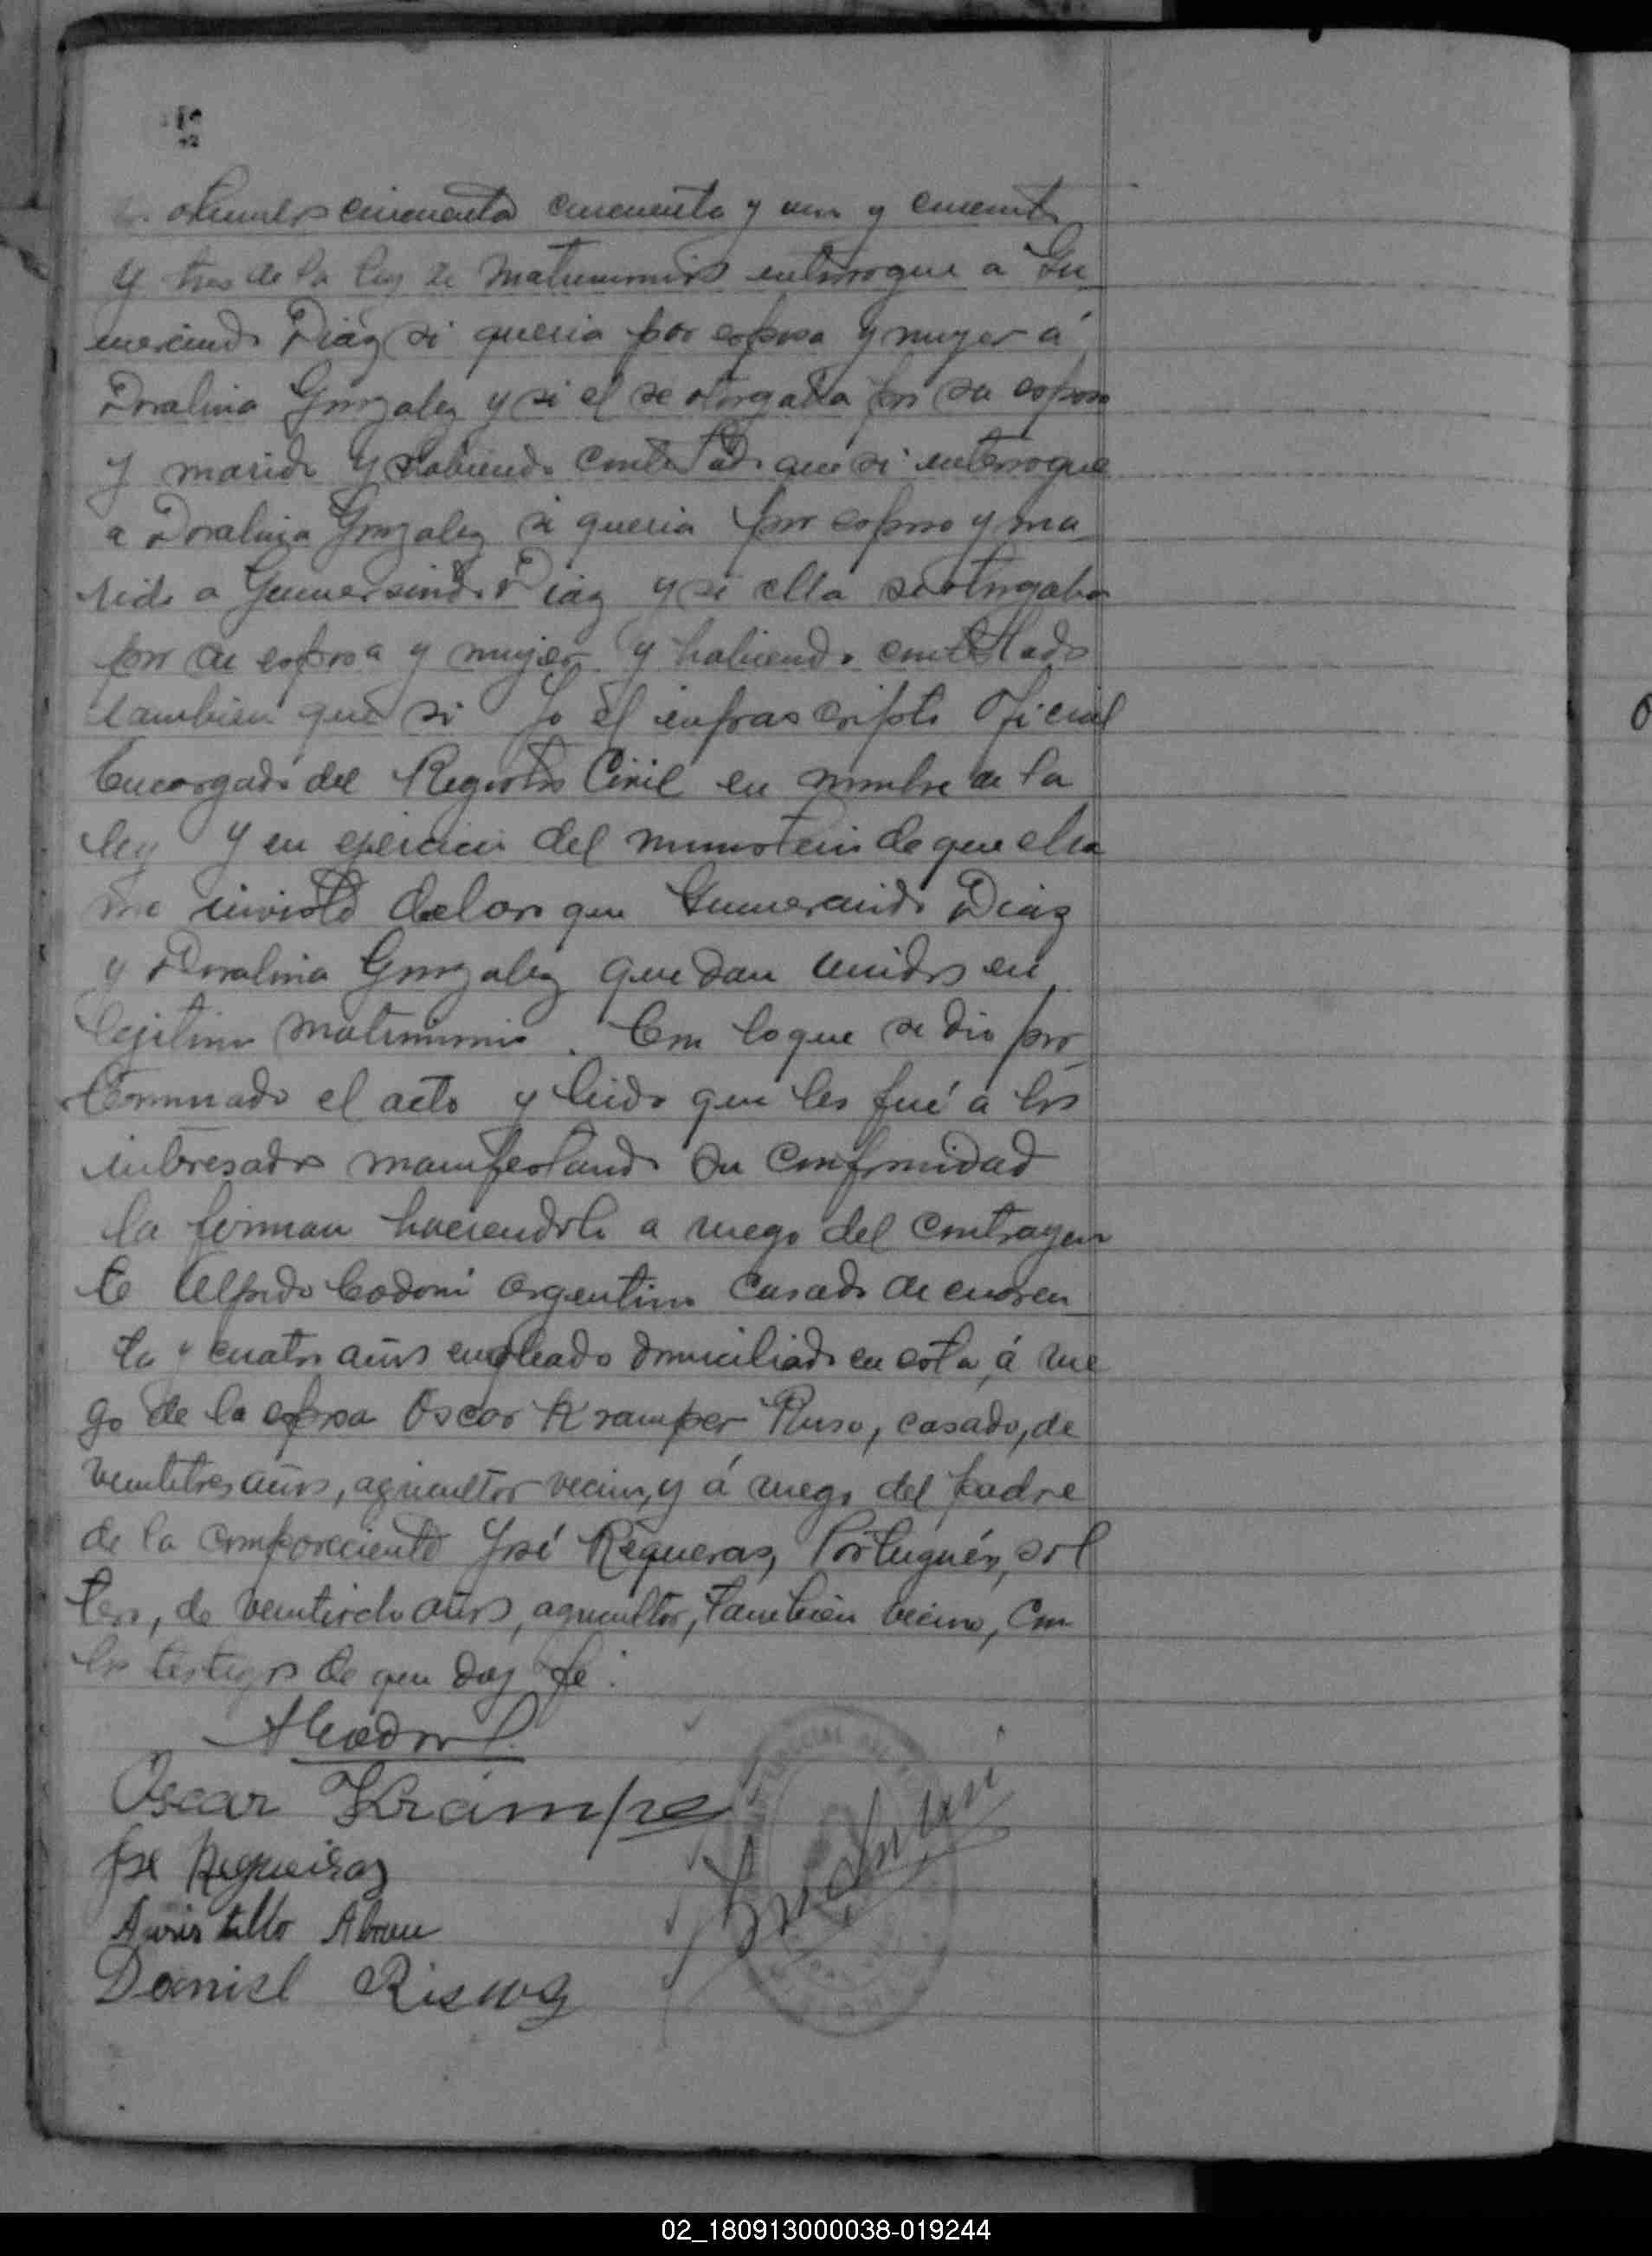 cincuenta cincuenta y uno y cincuenta
y tres de la ley de Matrimonio interrogue a Gu
mercindo Diaz si queria por esposa y muger á
Doralina Gonzalez y si el se otorgaba por su esposo
y marido y habiendo contestado que si interrogue
a Doralina Gonzalez si queria por esposo y ma
rido a Gumersindo Diaz y si ella se otorgaba
por su esposa y mujer y habiendo contestado
tambien que si Yo el infrascripto Oficial
Encargado del Registro Civil en nombre de la
ley y en ejercicio del ministerio de que ella
me inviste declaro que Gumercindo Diaz
y Doralina Gonzalez quedan unidos en
lejitimo matrimonio. Con lo que se dio por
terminado el acto y leido que les fué á los
interesados manifestando su conformidad
la firman haciendolo a ruego del contrayen
te Alfredo Codoni argentino casado de cuaren
ta y cuatro años empleado domiciliado en esta, á rue
go de la esposa Oscar Kramper Ruso, casado, de
veintitres años, agricultor vecino, y á ruego del padre
de la compareciente José Regueras, Portugués, sol
tero, de veintiocho años, agricultor, tambien vecino, con
los testigos de que doy fé.
Oscar Krampe
José Regueiraz
Aristillo Abreu
Daniel
02_180913000038-019244